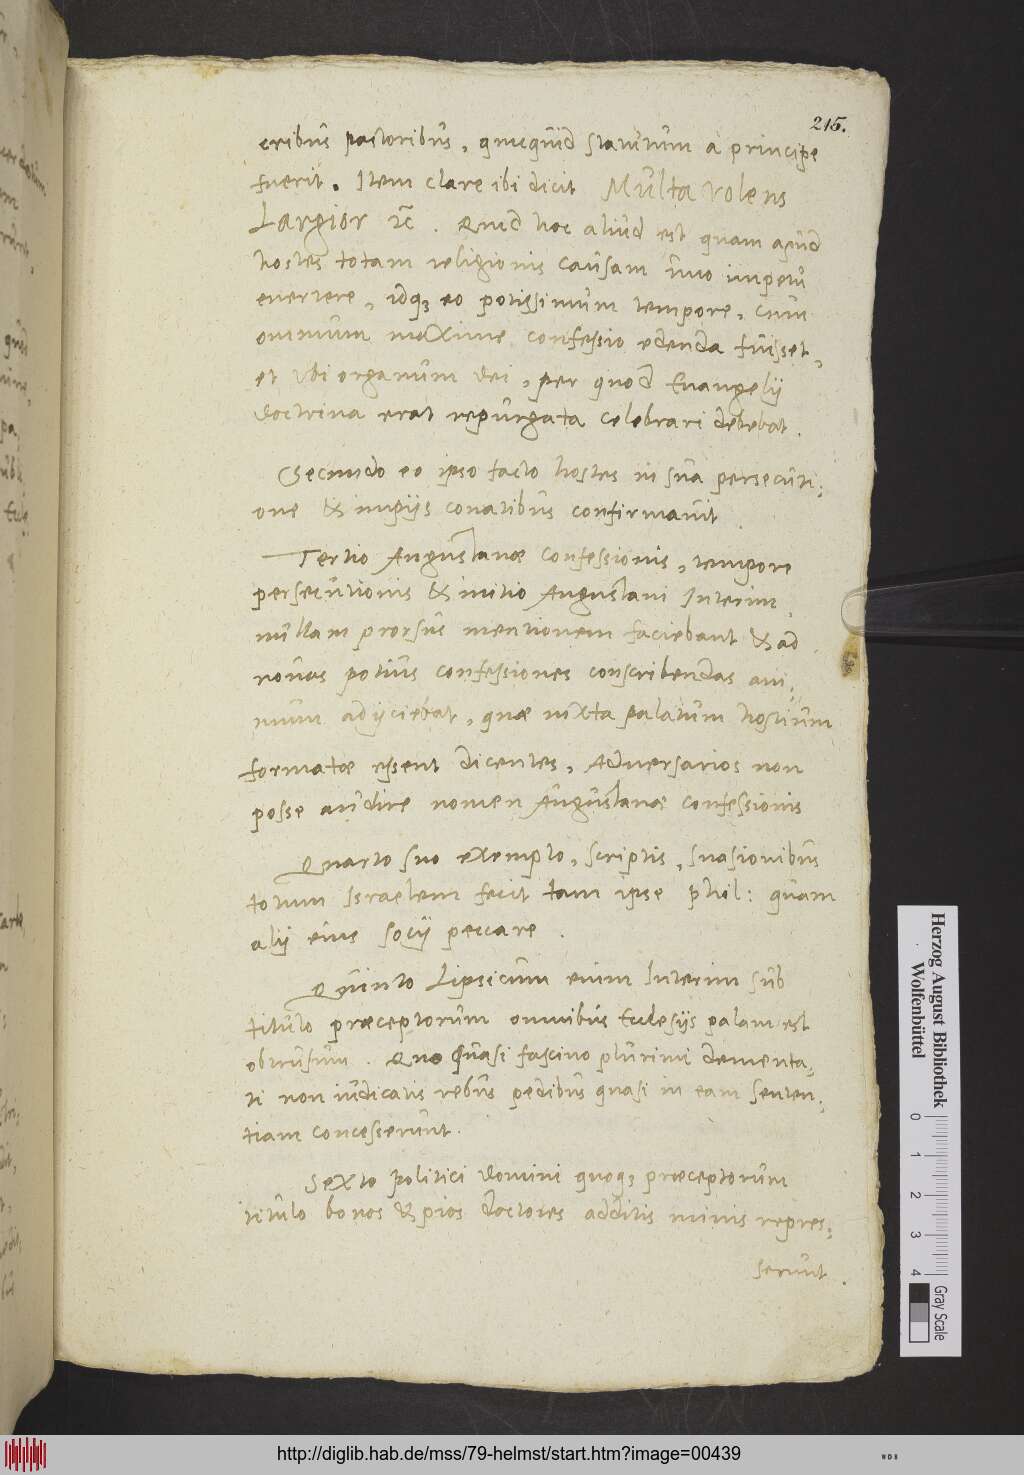 215.
cribus pastoribus, quicquid statutum a principe
fuerit. Item clare ibi dicit Multa volens
Largior ꝛc. Quid hoc aliud est quam apud
hostes totam religionis causam uno impetu
evertere, idqꝫ eo potissimum tempore, cum
omnium maxime confessio edenda fuisset,
et ubi organum Dei, per quod Euangelij
doctrina erat repurgata celebrari debebat.
Secundo eo ipso facto hostes in sua persecuti:
one & impijs conatibus confirmavit.
Tertio Augustanæ confessionis, tempore
persecutionis & initio Augustani Interim
nullam prorsus mentionem faciebant & ad
novas potius confessiones conscribendas ani:
mum adijciebat, quæ iuxta palatum hostium
formatæ essent dicentes, Adversarios non
posse audire nomen Augustanæ confessionis
Quarto suo exemplo, scriptis, suasionibus
totum Israelem fecit tam ipse Phil: quam
alij eius socij peccare.
Quinto Lipsicum enim Interim sub
titulo præceptorum omnibus Ecclesijs palam est
obtrusum. Quo quasi fascino plurimi dementa:
ti non iudicatis rebus pedibus quasi in eam senten:
tiam concesserunt.
Sexto politici domini quoqꝫ præceptorum
titulo bonos & pios doctores additis minis repres:
serunt.
Herzog August Bibliothek
Wolfenbüttel
0 1 2 3 4
Gray Scale
http://diglib.hab.de/mss/79-helmst/start.htm?image=00439